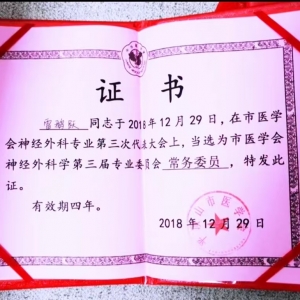 证书
同志于2018年12月29日,在市医学
会神经外科专业第三次代表大会上,当选为市医学会
神经外科学第三届专业委员会 常务委员 ,特发此
证。
有效期四年。
2018年12月29日